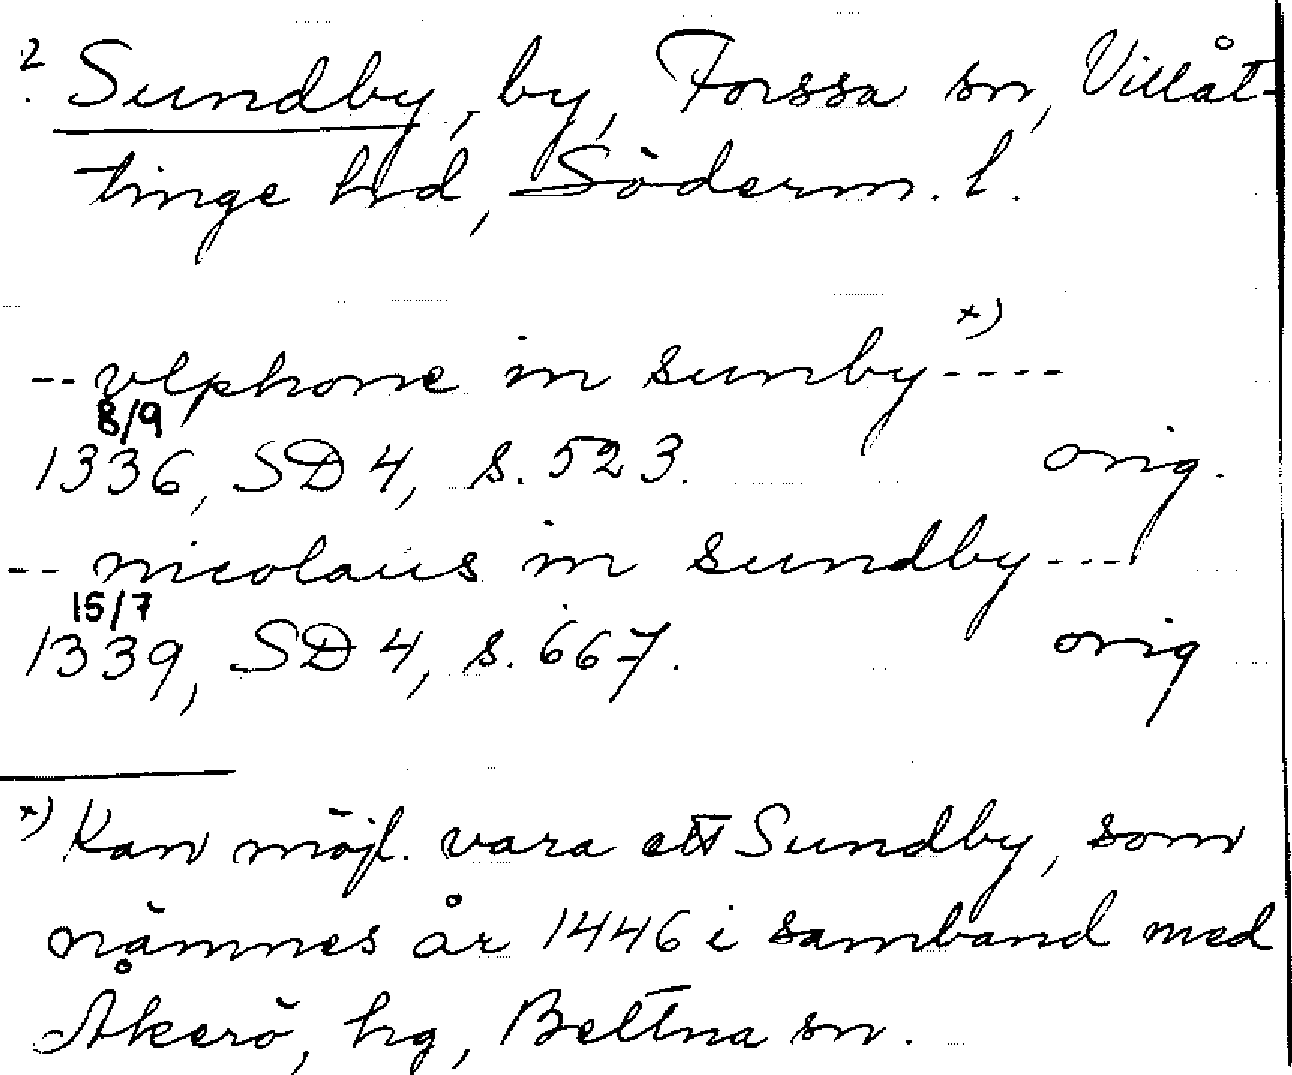 ? Sundby, by, Forssa sn, Villåt-
tinge hd, Söderm. l.
-- vlphone in sunby ----
x)
8/9
1336, SD 4, s. 523. orig.
-- nicolaus in sundby ---
15/7
1339, SD 4, s. 667. orig
x) Kan möjl. vara ett Sundby, som
nämnes år 1446 i samband med
Åkerö, hg, Bettna sn.